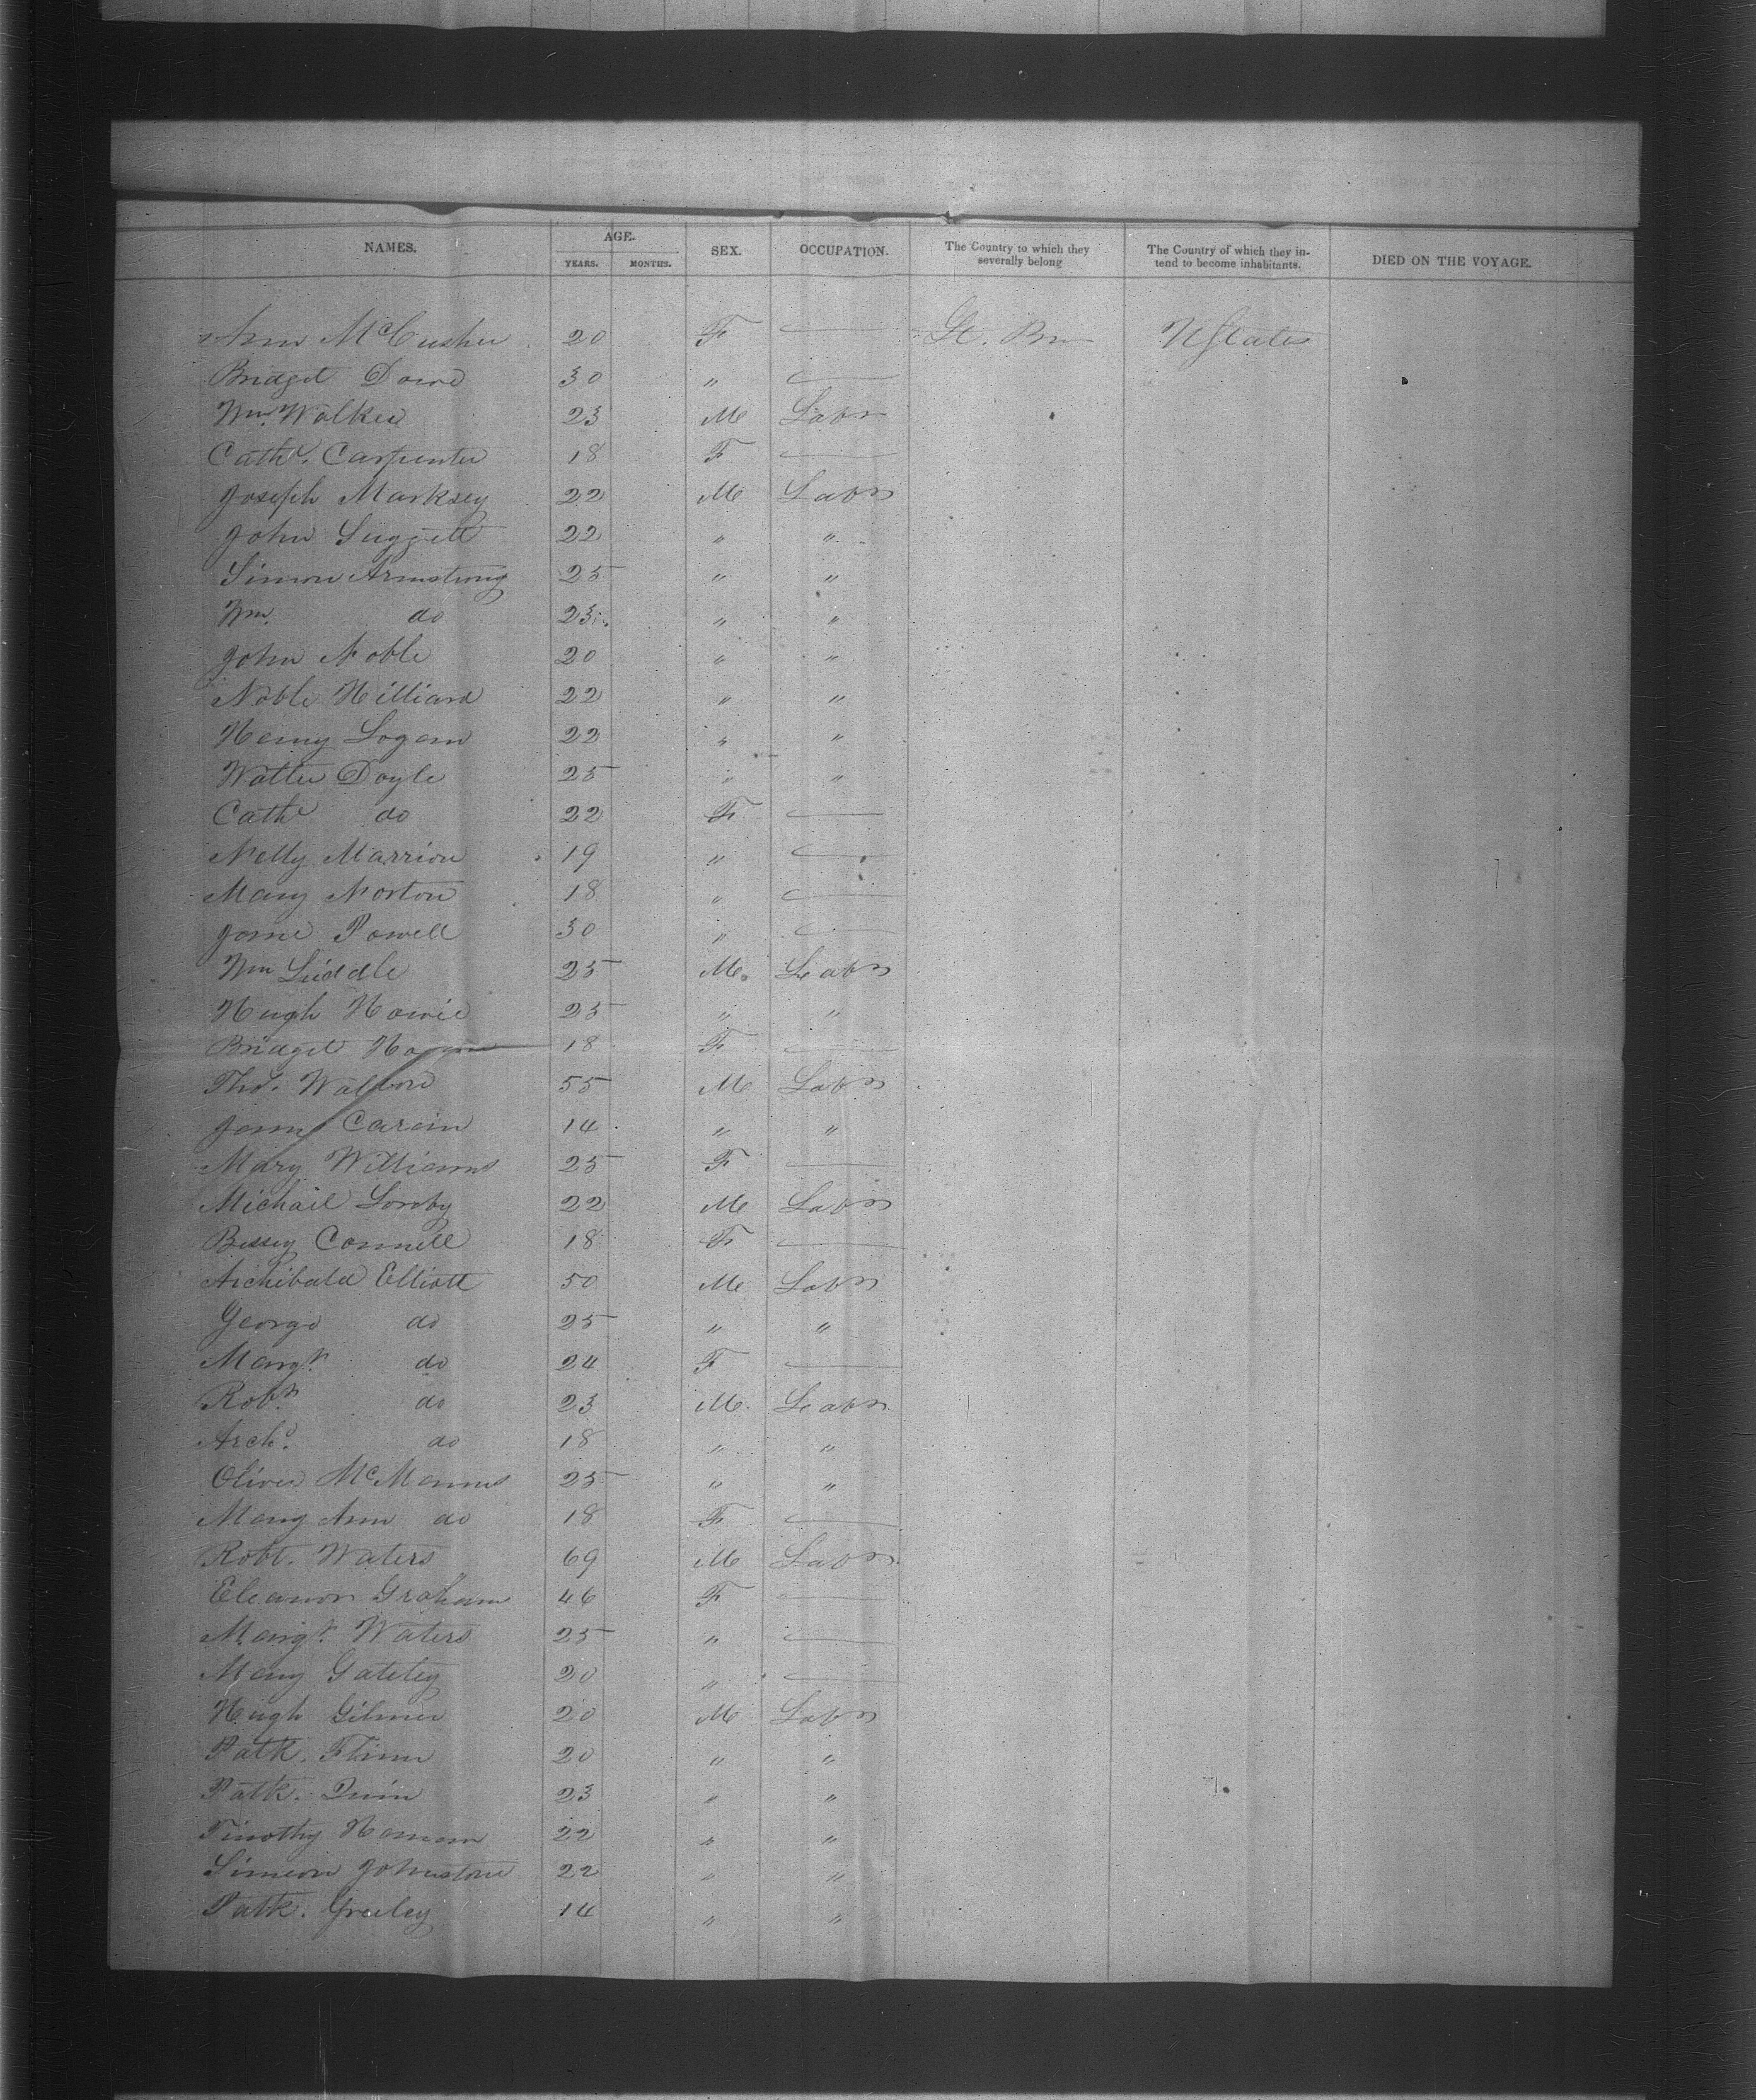 NAMES. AGE. SEX. OCCUPATION. The Country to which they severally belong The Country of which they intend to become inhabitants. DIED ON THE VOYAGE.
YEARS. MONTHS.
Ann McCusker 20 F — Gt. Brn UStates
Bridget Dowd 30 " —
Wm. Walker 23 M Labr
Cathe. Carpenter 18 F —
Joseph Marksey 22 M Labr
John Suggett 22 " "
Simon Armstrong 25 " "
Wm. do 23 " "
John Noble 20 " "
Noble Hilliard 22 " "
Henry Logan 22 " "
Walter Doyle 25 " "
Cathe do 22 F —
Nelly Marrion 19 " —
Mary Norton 18 " —
Jane Powell 30 " —
Wm Liddle 25 M. Labr
Hugh Howie 25 " "
Bridget 18 F —
Thos. Walton 55 M Labr
Carcin 14 " "
Mary Williams 25 F —
Michail 22 M Labr
Bessey Connell 18 F —
Archibald Elliott 50 M Labr
George do 25 " "
Margt. do 24 F —
Robt. do 23 M. Labr
Archd. do 18 " "
Oliver McManus 25 " "
Mary Ann do 18 F —
Robt. Waters 69 M Labr
Eleanor Graham 46 F —
Margt. Waters 25 " —
Mary Gateley 20 " —
Hugh Gilmer 20 M Labr
Patk. Flinn 20 " "
Patk. Quin 23 " "
Timothy Hannan 22 " "
Simeon Johnstone 22 " "
Patk. Greeley 14 " "